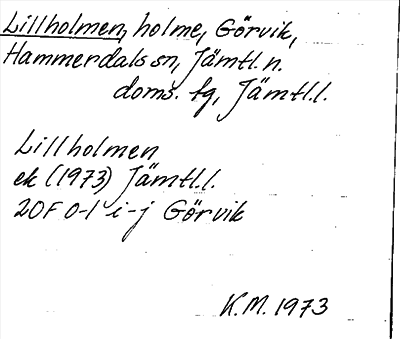 Lillholmen, holme, Görvik,
Hammerdals sn, Jämtl. n.
doms. fg, Jämtl.l.
Lillholmen
ek (1973) Jämtl.l.
20F 0-1 i-j Görvik
K.M. 1973